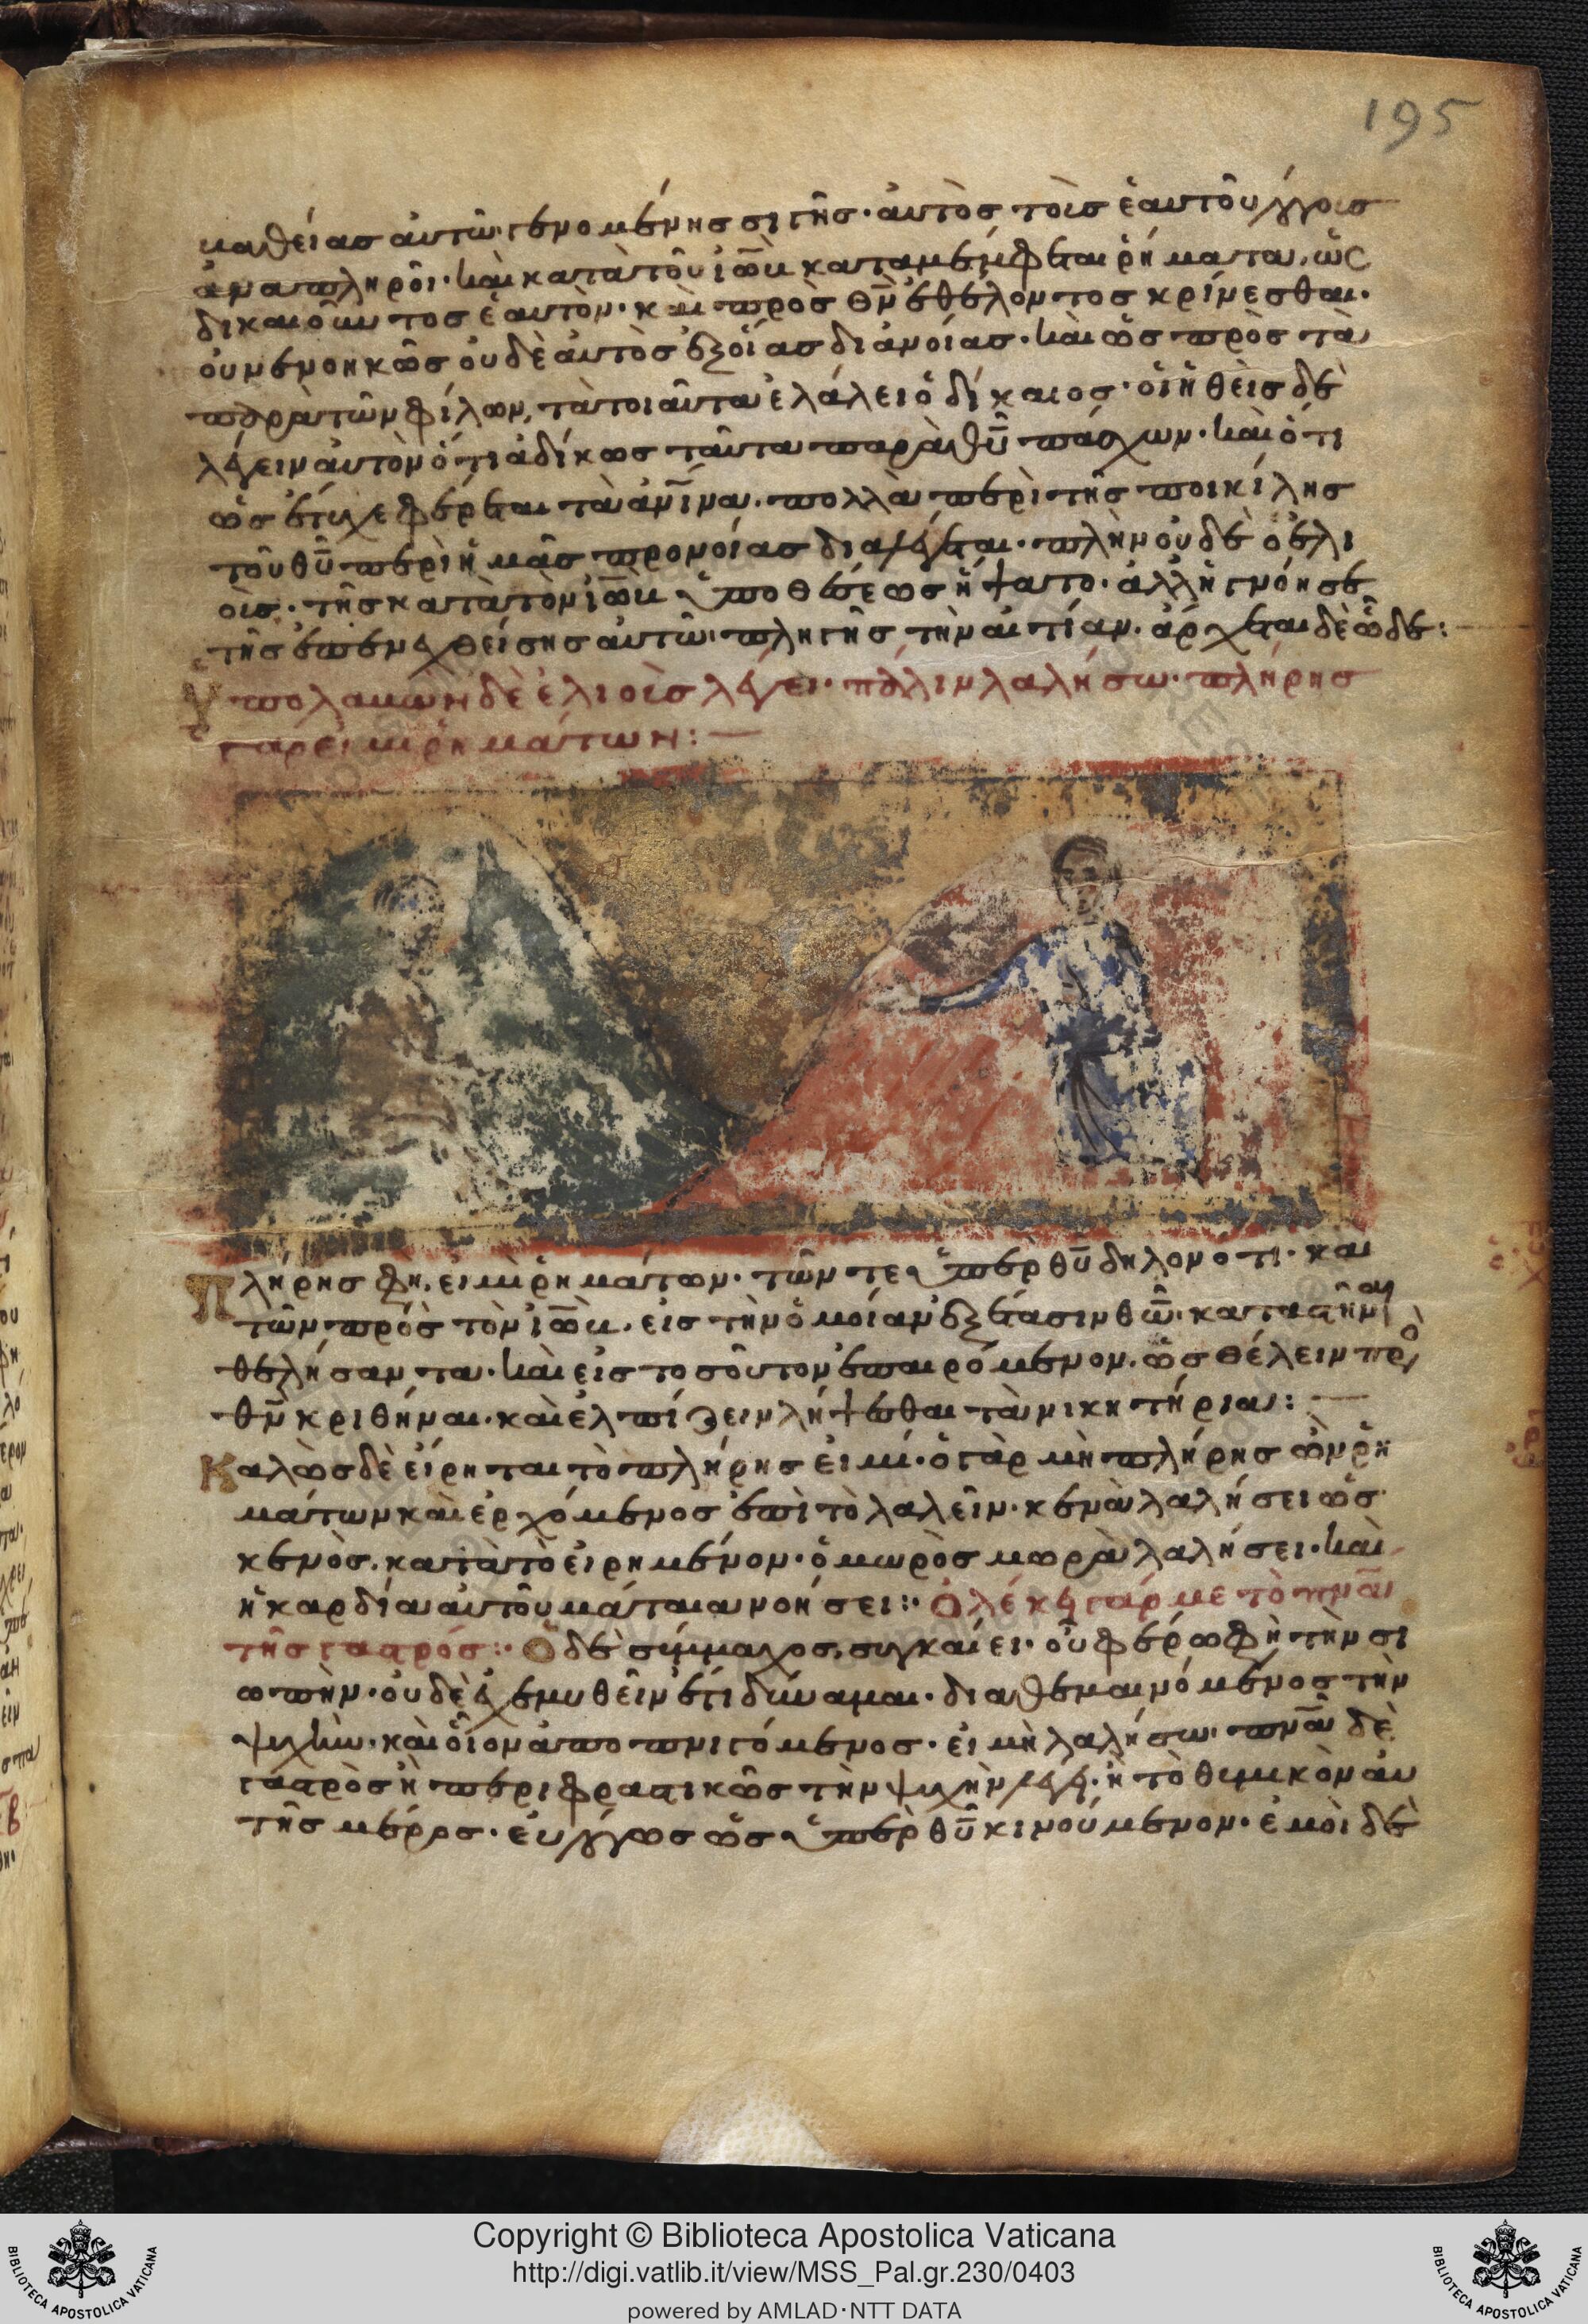 195
μαθείας αὐτῶ γενομένης σιγῆς· αὐτὸς τοῖς ἑαυτοῦ λόγοις
ἀναπληροῖ· καὶ κατὰ τοῦ ἰὼβ καταμέμφεται ῥήματα, ὡς
δικαιοῦντος ἑαυτὸν· καὶ πρὸς θν ἐθέλοντος κρίνεσθαι·
οὐ νενοηκὼς οὐδὲ αὐτὸς ἐξ οἵας διανοίας· καὶ ὡς πρὸς τὰ
παρὰ τῶν φίλων, τὰ τοιαῦτα ἐλάλει ὁ δίκαιος· οἰηθεὶς δὲ
λέγειν αὐτὸν ὅτι ἀδίκως ταῦτα παρὰ θυ πάσχων· καὶ ὅτι
ὡς ἔτυχε φέρεται τὰ ἀνινα· πολλὰ περὶ τῆς ποικίλης
τοῦ θυ περὶ ἡμᾶς προνοίας διαλέγεται· πλὴν οὐδὲ ὁ ἐλι
οὺς· τῆς κατὰ τὸν ἰὼβ ὑποθέσεως ἥψατο· ἀλλ' ἠγνόησε
τῆς ἐπενεχθείσης αὐτῶ πληγῆς τὴν αἰτίαν· ἄρχεται δὲ ὧδε:
ὑπολαβὼν δὲ ἐλιοὺς λέγει· πάλιν λαλήσω· πλήρης
γάρ εἰμι ῥημάτων:—
πλήρης φη, εἰμὶ ῥημάτων· τῶν τε ὑπὲρ θυ δηλονότι· καὶ
τῶν πρὸς τὸν ἰὼβ· εἰς τὴν ὁμοίαν ἐξέτασιν θω· καταστῆναι
θελήσαντα· καὶ εἰς τοσοῦτον ἐπαιρόμενον· ὡς θέλειν πρὸ
θν κριθῆναι· καὶ ἐλπίζειν λήψεσθαι τὰ νικητήρια:—
καλῶς δὲ εἴρηται τὸ πλήρης εἰμί· ὁ γὰρ μὴ πλήρης ὢν ῥη
μάτων καὶ ἐρχόμενος ἐπὶ τὸ λαλεῖν· κενὰ λαλήσει ὡς
κενὸς· κατὰ τὸ εἰρημένον· ὁ μωρὸς μωρὰ λαλήσει· καὶ
ἡ καρδία αὐτοῦ μάταια νοήσει:· Ὀλέκει γάρ με τὸ πνα
τῆς γαστρός:· Ὁ δὲ σύμμαχος, συγκαίει· οὐ φέρω φη τὴν σι
ωπὴν· οὐδὲ ἐχεμυθεῖν ἔτι δύναμαι· διαθερμαινόμενος τὴν
ψυχὴν· καὶ οἷον ἀποπνιγόμενος· εἰ μὴ λαλήσω· πνα δὲ
γαστρὸς ἢ περιφραστικῶς τὴν ψυχὴν λέγει· ἢ τὸ θυμικὸν αὐ
τῆς μέρος· εὐλόγως ὡς ὑπὲρ θυ κινούμενον· ἐμοὶ δὲ
Copyright © Biblioteca Apostolica Vaticana
http://digi.vatlib.it/view/MSS_Pal.gr.230/0403
powered by AMLAD·NTT DATA
BIBLIOTECA APOSTOLICA VATICANA
BIBLIOTECA APOSTOLICA VATICANA